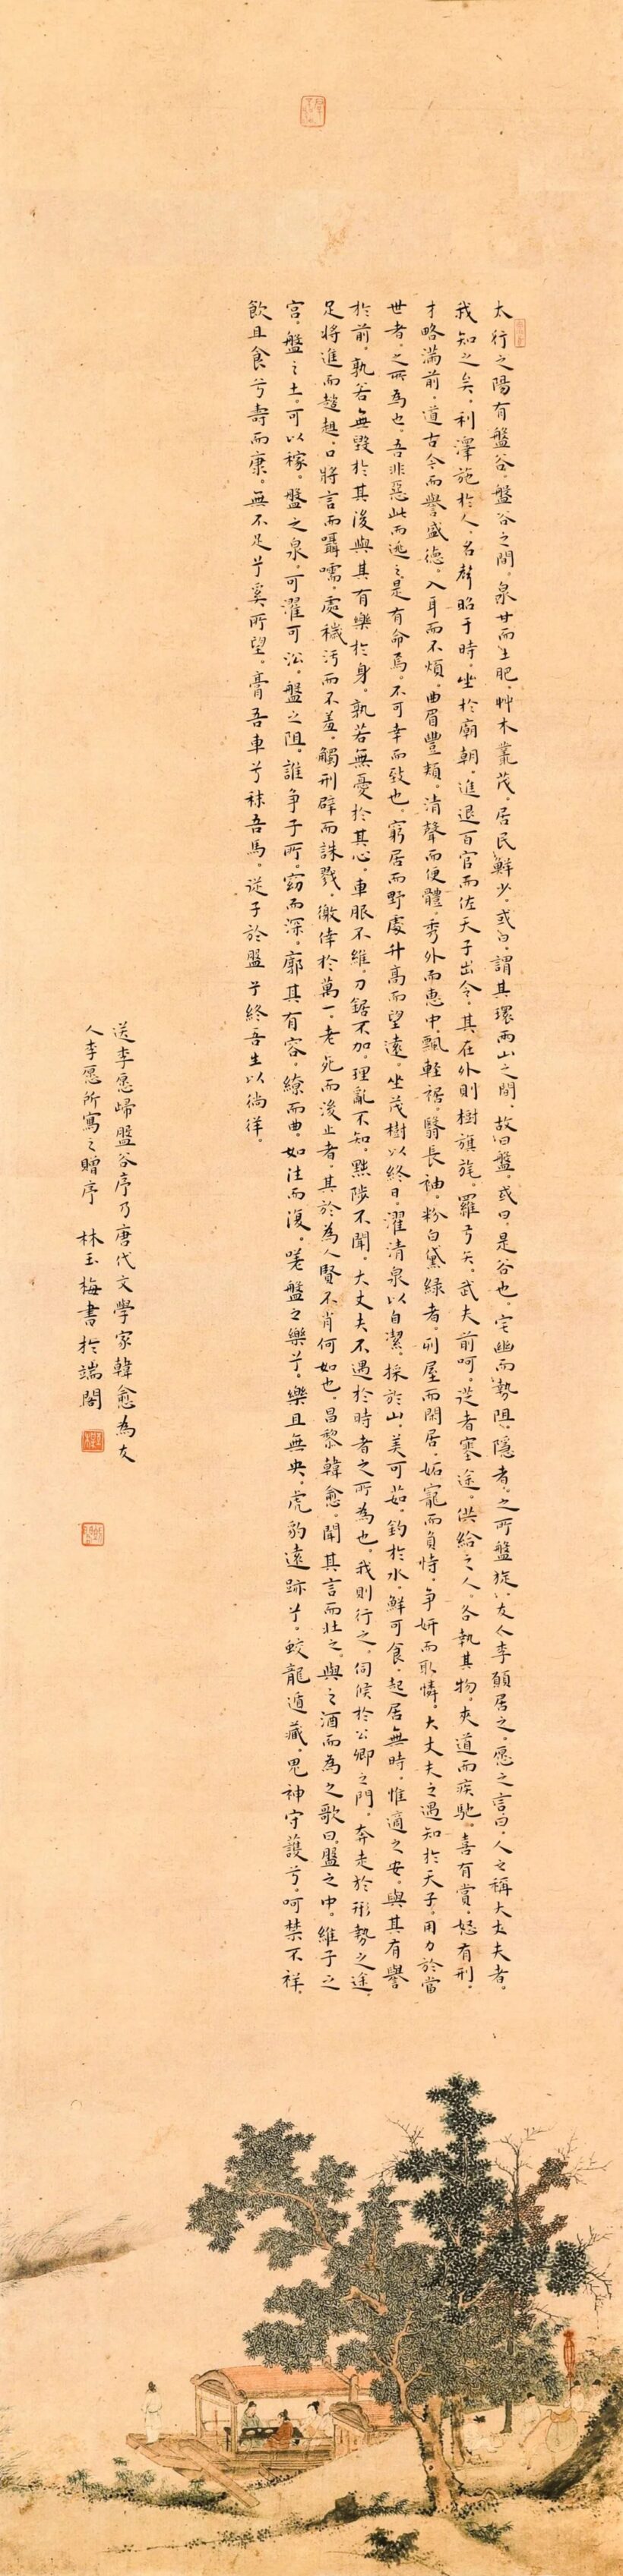 太行之陽有盤谷。盤谷之間。泉甘而土肥。艸木叢茂。居民鮮少。或曰。謂其環兩山之間。故曰盤。或曰。是谷也。宅幽而勢阻。隱者。之所盤旋。友人李願居之。愿之言曰。人之稱大丈夫者。
我知之矣。利澤施於人。名聲昭于時。坐於廟朝。進退百官而佐天子出令。其在外則樹旗旄。羅弓矢。武夫前呵。從者塞途。供給之人。各執其物。夾道而疾馳。喜有賞。怒有刑。
才略滿前。道古今而譽盛德。入耳而不煩。曲眉豐頰。清聲而便體。秀外而惠中。飄輕裾。翳長袖。粉白黛綠者。列屋而閑居。妬寵而負恃。爭妍而取憐。大丈夫之遇知於天子。用力於當
世者。之所為也。吾非惡此而逃之。是有命焉。不可幸而致也。窮居而野處。升高而望遠。坐茂樹以終日。濯清泉以自潔。採於山。美可茹。釣於水。鮮可食。起居無時。惟適之安。與其有譽
於前。孰若無毀於其後。與其有樂於身。孰若無憂於其心。車服不維。刀鋸不加。理亂不知。黜陟不聞。大丈夫不遇於時者之所為也。我則行之。伺候於公卿之門。奔走於形勢之途。
足將進而趑趄。口將言而囁嚅。處穢污而不羞。觸刑辟而誅戮。徼倖於萬一。老死而後止者。其於為人賢不肖何如也。昌黎韓愈。聞其言而壯之。與之酒而為之歌曰。盤之中。維子之
宮。盤之土。可以稼。盤之泉。可濯可沿。盤之阻。誰爭子所。窈而深。廓其有容。繚而曲。如往而復。嗟盤之樂兮。樂且無央。虎豹遠跡兮。蛟龍遁藏。鬼神守護兮。呵禁不祥。
飲且食兮壽而康。無不足兮奚所望。膏吾車兮秣吾馬。從子於盤兮終吾生以徜徉。
送李愿歸盤谷序乃唐代文學家韓愈為友
人李愿所寫之贈序 林玉梅書於端閣